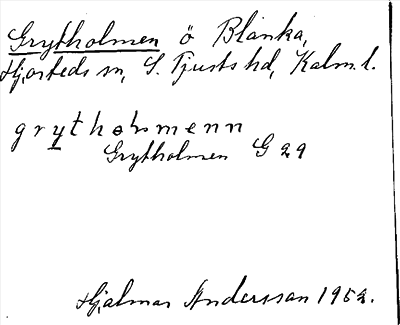 Grytholmen ö Blanka,
Hjorteds sn, S. Tjusts hd, Kalm. l.
grytholsmenn
Grytholmen G 29
Hjalmar Andersson 1952.